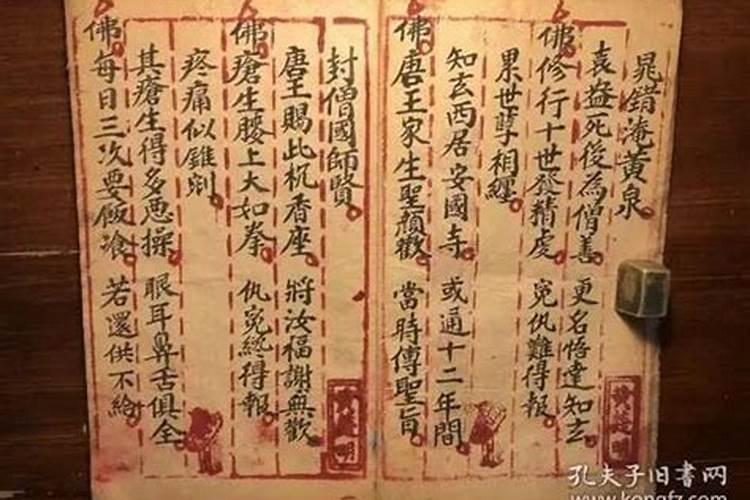 晁錯淹黄泉
袁益死後為僧善 更名悟達知玄
佛修行十世發精虔 冤仇難得報
累世孽相纏
知玄西居安國寺 或通十二年間
佛唐王家生聖顏歡 當時傳聖旨
封僧國師賢
唐王賜此机香座 將汝福謝無歡
佛瘡生腰上大如拳 仇冤終得報
疼痛似錐剜
其瘡生得多惡操 眼耳鼻舌俱全
佛每日三次要飯飡 若還供不給
孔夫子旧书网